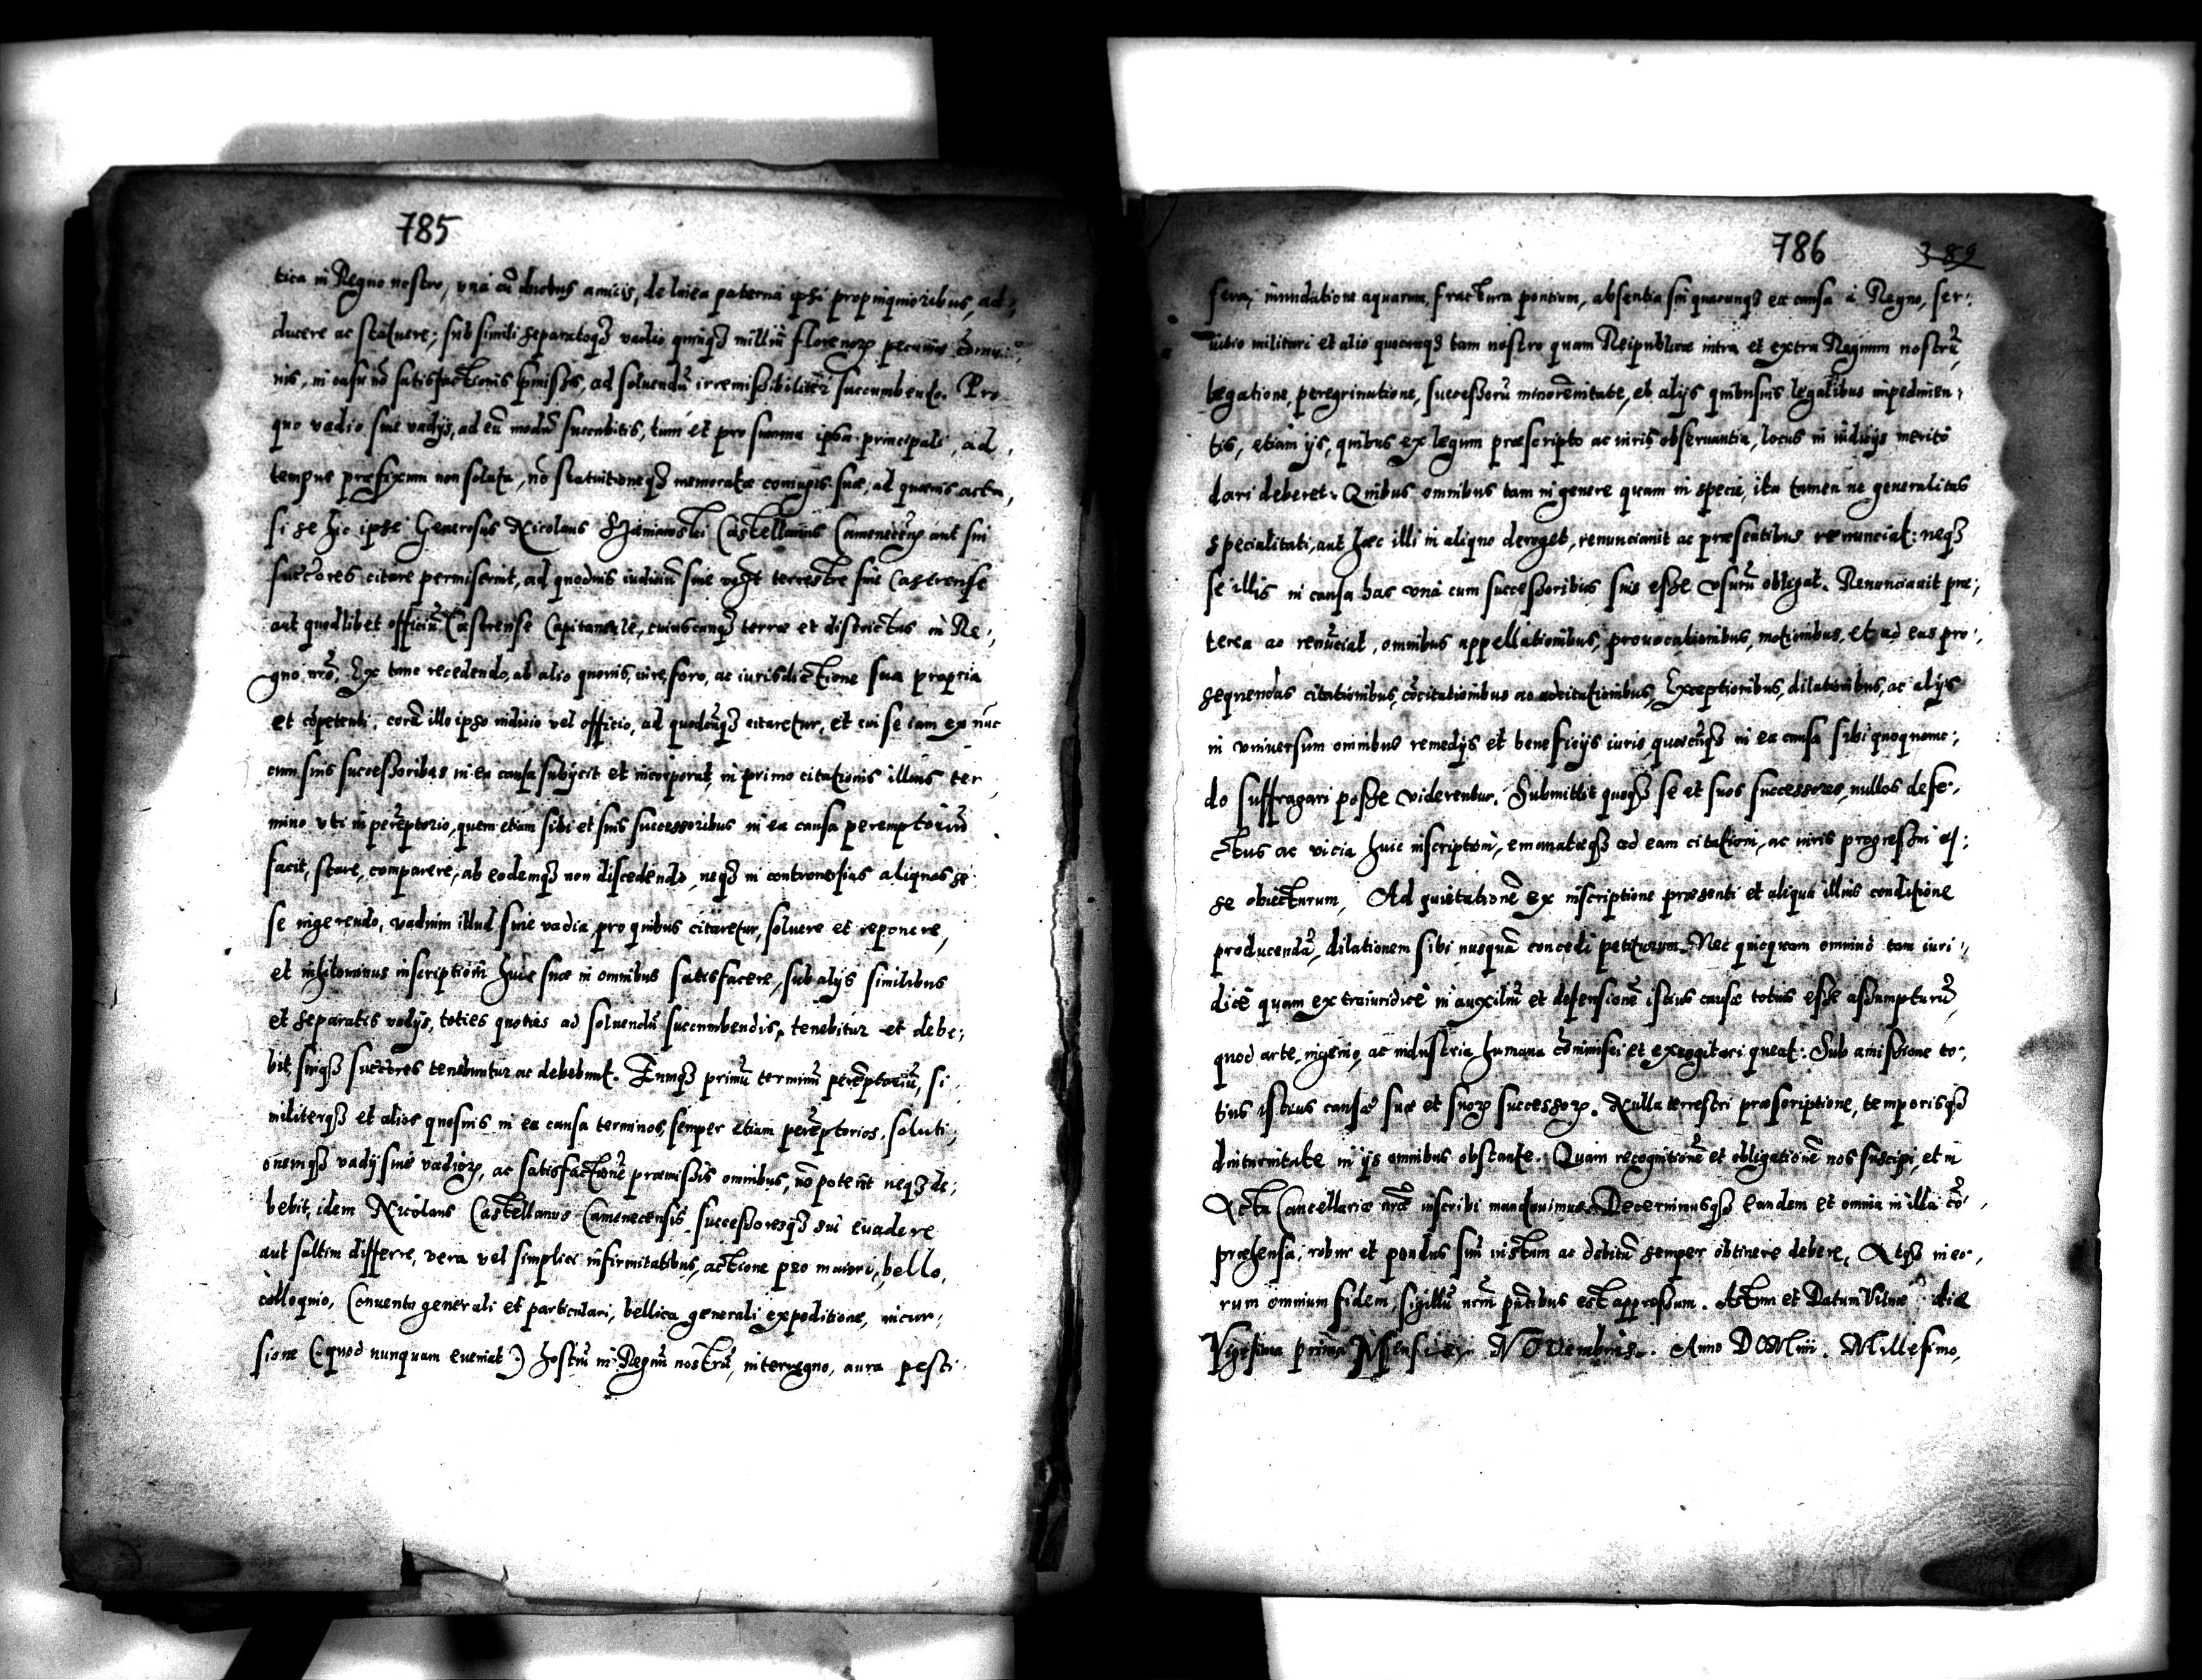 785
tica in Regno nostro, unà cũ duobus amicis, de linea paterna ipsi propinquioribus, ad,
ducere ac statuere, sub simili separatoq3 vadio quinq3 milliũ florenorꝝ pecuniæ
nis, in casu nõ satisfactionis pmissis, ad soluendũ irremissibiliter succumbendo. Pro
quo vadio siue vadijs, ad eũ modũ succubitis, tum et pro summa ipsa principali, ad
tempus præfixum non soluta, nõ statuitioneq3 memoratæ coniugis suæ, ad quæuis acta,
si se hic ipse Generosus Nicolaus Castellanus Camenecen̄ aut sui
succ̄ores citare permiserint, ad quoduis iudiciũ siue terrestre siue Castrense
aut quodlibet officiũ Castrense Capitaneale, cuiuscunq3 terræ et districtus in Re,
gno nr̃o, Ex tunc recedendo, ab alio quouis, iure, foro, ac iurisdictione sua propria
et cõpetenti, corã illo ipso iudicio vel officio, ad quodcũq3 citaretur, et cui se iam ex nũc
cum suis successoribus in ea causa subijcit et incorporat, in primo citationis illius ter
mino uti in perẽptorio, quem etiam sibi et suis successoribus in ea causa peremptoriũ
facit, stare, comparere, ab eodemq3 non discedendo, neq3 in controuersias aliquas se
se ingerendo, vadium illud siue vadia, pro quibus citaretur, soluere et reponere,
et nihilominus inscriptioni huic suæ in omnibus satisfacere, sub alijs similibus
et separatis vadijs, toties quoties ad soluendũ succumbendis, tenebitur et debe,
bit, suiq3 succ̄ores tenebuntur ac debebunt. Eumq3 primũ terminũ perẽptoriũ, si
militerq3 et alios quosuis in ea causa terminos, semper etiam perẽptorios, soluti,
onemq3 vadij siue vadiorꝝ, ac satisfactionẽ præmissis omnibus, nõ poterit neq3 de,
bebit, idem Nicolaus Castellanus Camenecensis successoresq3 sui euadere
aut saltim differre, vera vel simplici infirmitatibus, actione pro maiori, bello,
colloquio, Conuentu generali et particulari, bellica generali expeditione, incur,
sione (quod nunquam eueniat) hostiũ in Regnũ nostrũ, interregno, aura pesti
786 389
fera, inundatione aquarum, fractura pontium, absentia sui quacunq3 ex causa à Regno, ser,
uitio militari et alio quocunq3 tam nostro quam Reipublicæ intra et extra Regnum nostrũ,
legatione, peregrinatione, successorũ minorẽnitate, et alijs quibusuis legalibus impedimen,
tis, etiam ijs, quibus ex legum præscripto ac iuris obseruantia, locus in iudicijs meritò
dari deberet. Quibus omnibus tam in genere quam in specie, ita tamen ne generalitas
specialitati, aut hæc illi in aliquo deroget, renunciauit ac præsentibus renunciat: neq3
se illis in causa hac unà cum successoribus suis esse usurũ obligat. Renunciauit præ,
terea ac renũciat, omnibus appellationibus, prouocationibus, motionibus, et ad eas pro,
sequendas citationibus, cõcitationibus ac adcitationibus, Exceptionibus, dilationibus, ac alijs
in uniuersum omnibus remedijs et beneficijs iuris, quæcũq3 in ea causa sibi quoquomo,
do suffragari posse viderentur. Submittit quoq3 se et suos successores, nullos defe,
ctus ac vicia huic inscriptioni, emanatæq3 ad eam citationi, ac iuris progressui es,
se obiecturum, Ad quietationẽ ex inscriptione præsenti et aliqua illius conditione
producendã, dilationem sibi nusquã concedi petiturum. Nec quicquam omninò tam iuri,
dicè quam extraiuridicè in auxiliũ et defensionẽ istius causæ totius esse assumpturũ,
quod arte, ingenio, ac industria humana cõminisci et excogitari queat: Sub amissione to,
tius istius causæ suæ et suorꝝ successorꝝ. Nulla terrestri præscriptione, temporisq3
diuturnitate in ijs omnibus obstante. Quam recognitionẽ et obligationẽ nos suscipi, et in
Acta Cancellariæ nr̃æ inscribi mandauimus. Decernimusq3 eandem et omnia in illa cõ,
præhensa, robur et pondus suũ iustum ac debitũ semper obtinere debere. Atq3 in eo,
rum omnium fidem, sigillũ nr̃m pñtibus est appressum. Actum et Datum Vilnæ die
Vigesima prima Mensis Nouembris. Anno DOMini. Millesimo,